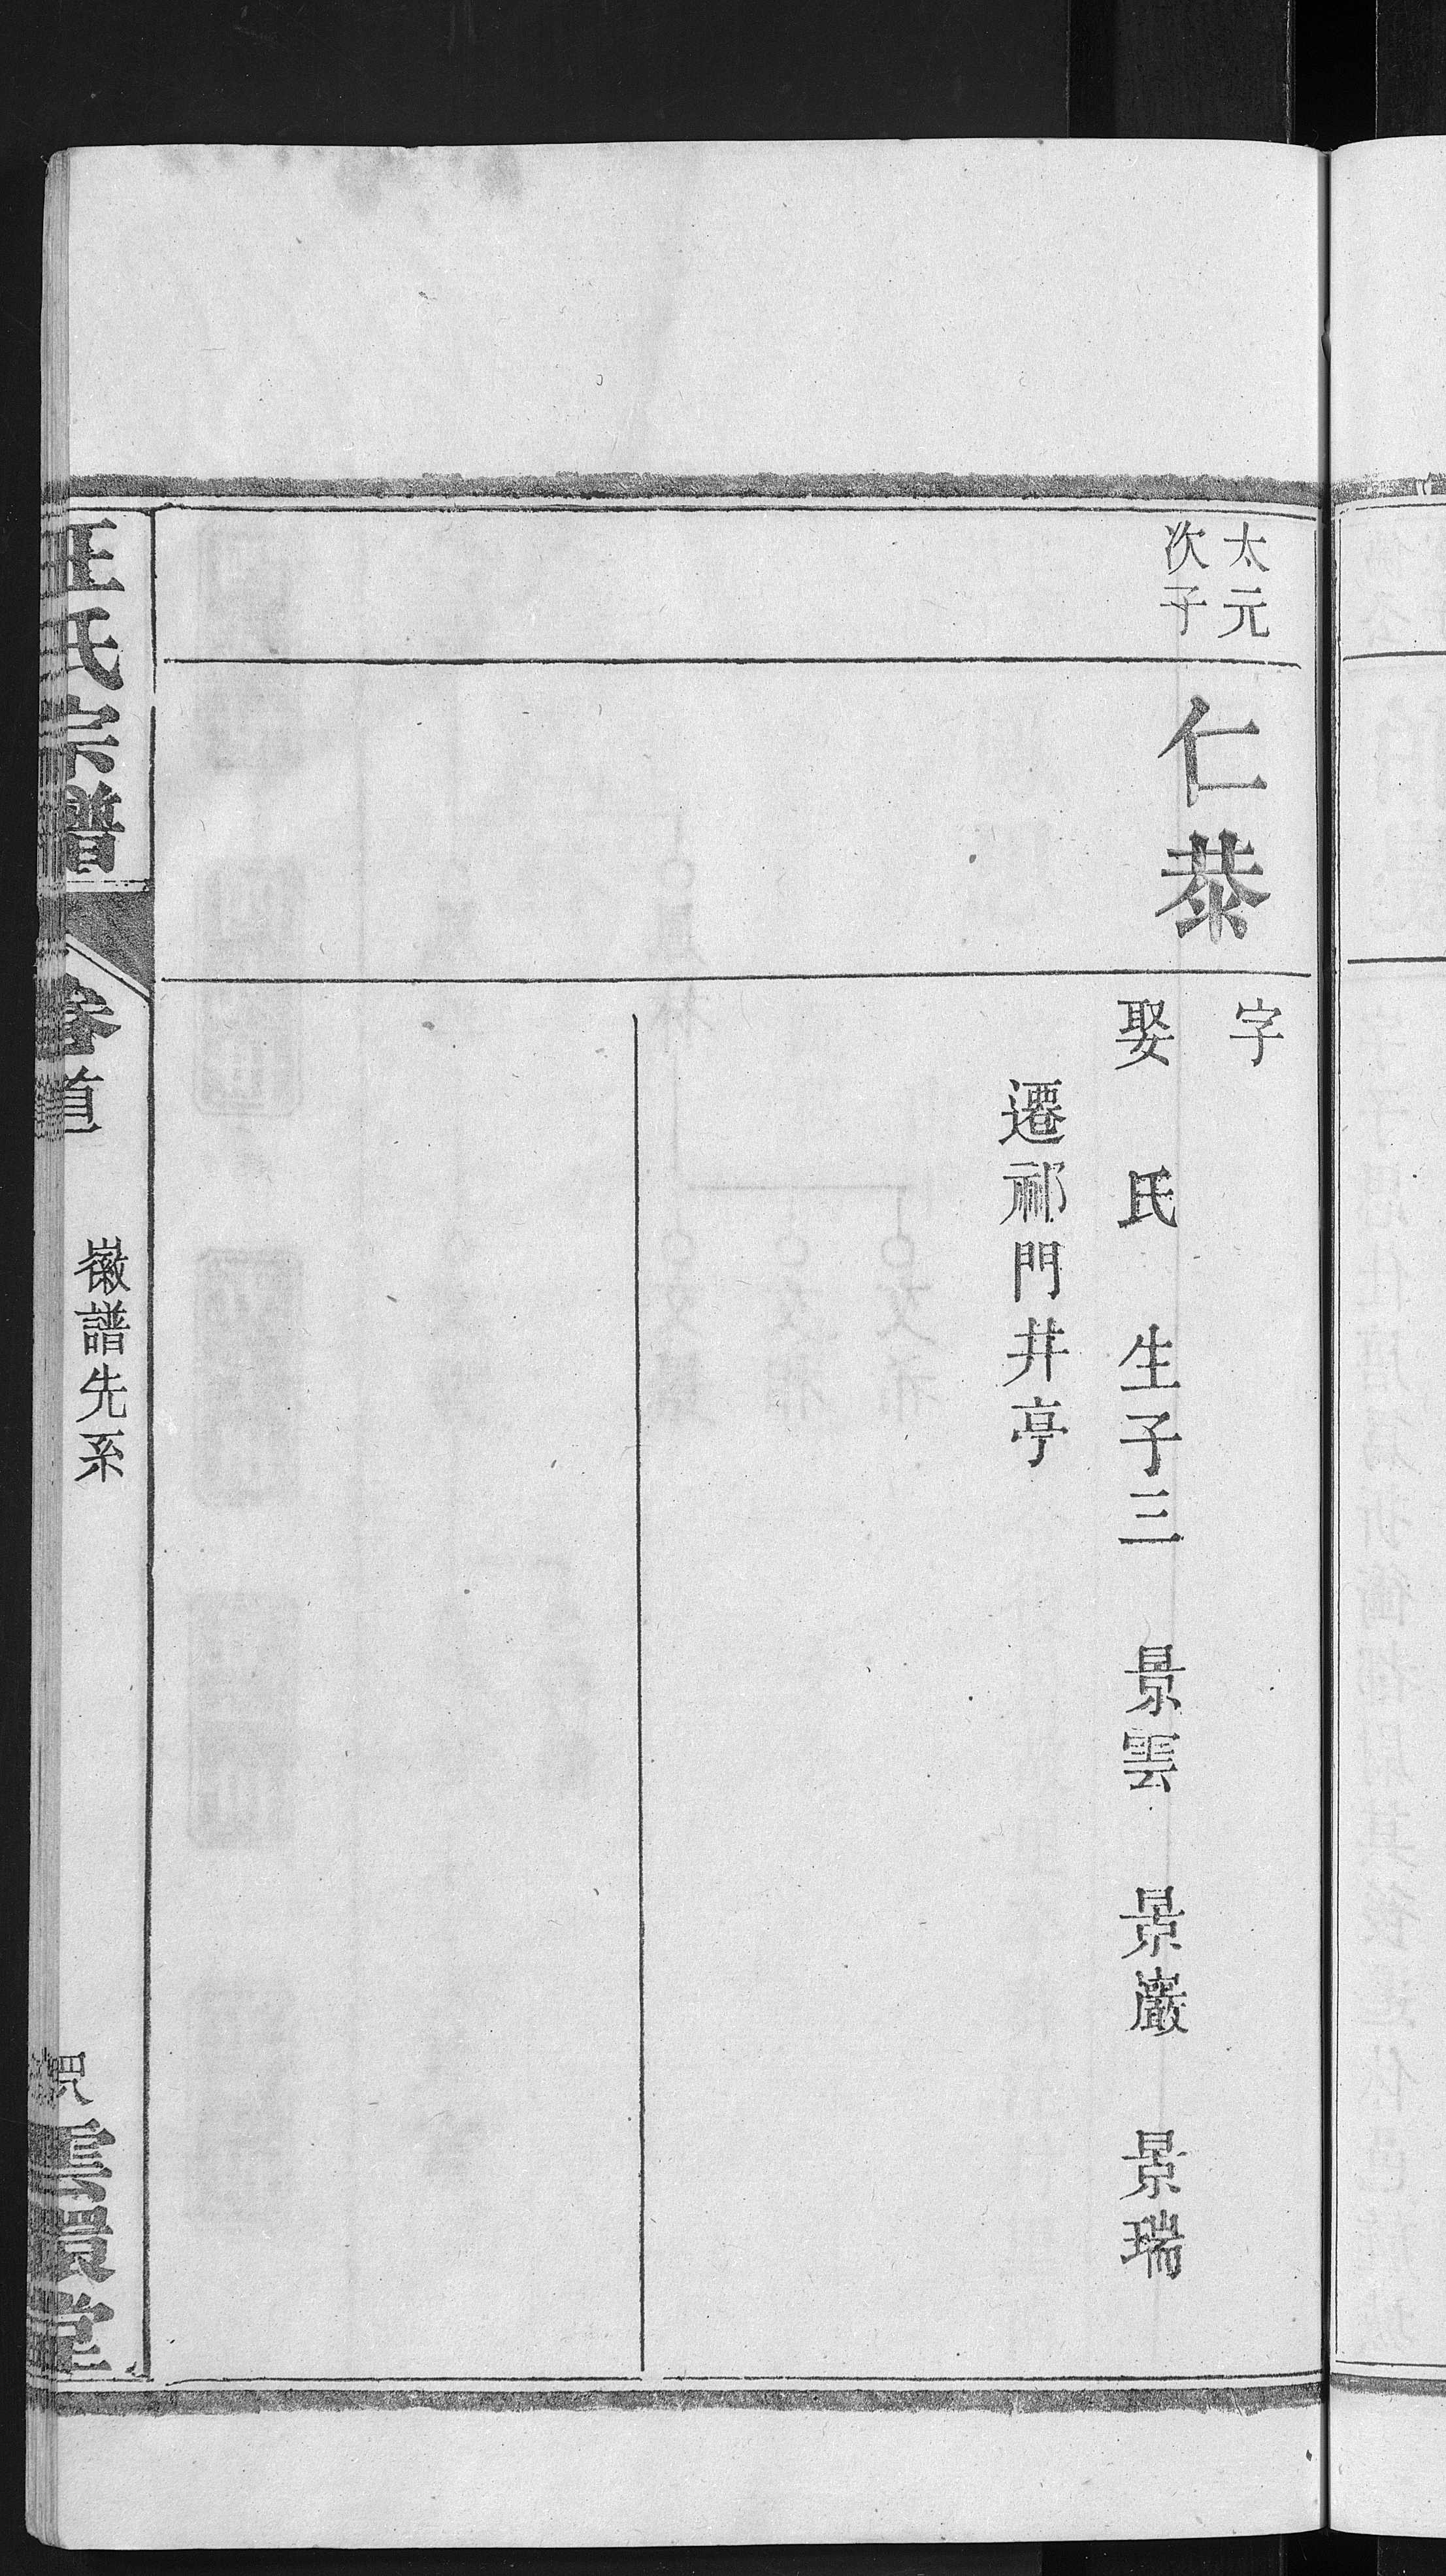 太元
次子
仁恭
字
娶　氏　生子三　景雲　景巖　景瑞
遷祁門井亭
汪氏宗譜
卷首
徽譜先系
雲環堂